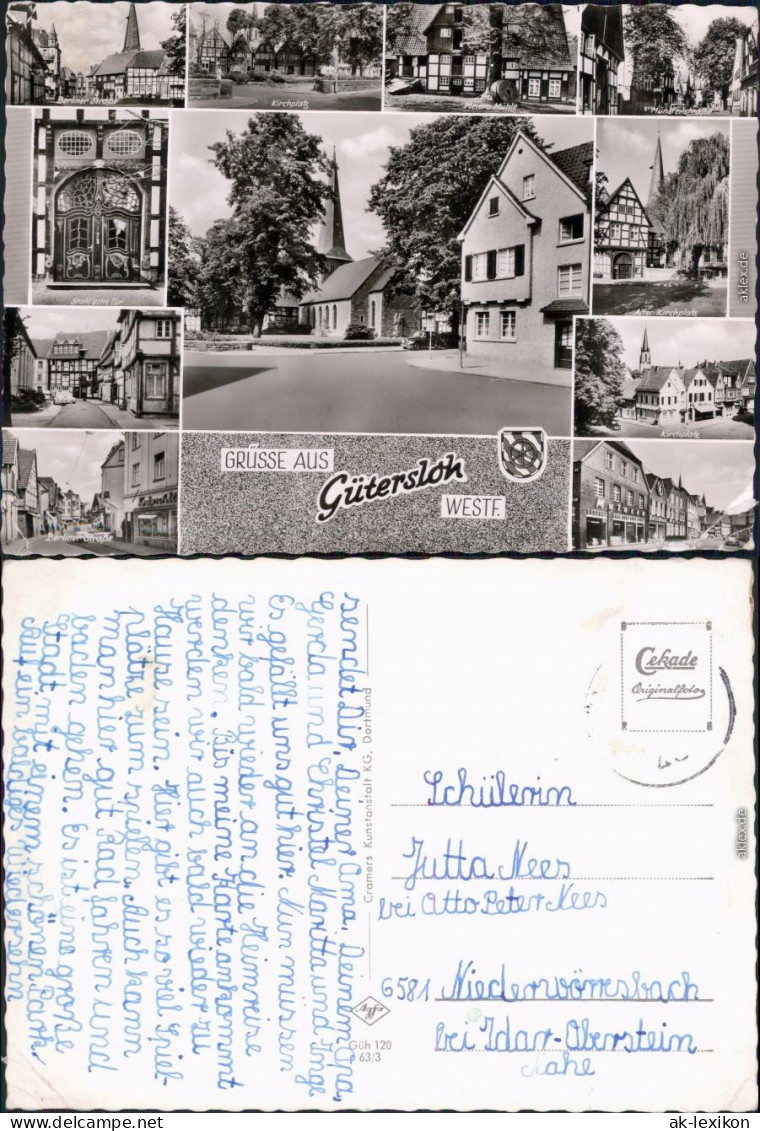 Berliner Straße
Kirchplatz
Meiers Mühle
Münsterstraße
Stahl'sche Tür
Alter Kirchplatz
Kirchplatz
Berliner Straße
GRÜSSE AUS
Gütersloh
WESTF.
aklex.de
sendet Dir, Deiner Oma, Deinem Opa,
Gerda und Christel Moritta und Inge
Es gefällt uns gut hier. Nun mussen
wir bald wieder an die Heimreise
denken. Bis meine Karte ankommt
werden wir auch bald wieder zu
Hause sein. Hier gibt es so viel Spiel-
plätze zum spielen. Auch kann
man hir gut Rad fahren und
baden gehen. Es ist eine große
Stadt mit einem schönen Park
Auf ein baldiges Wiedersehn
Cramers Kunstanstalt KG, Dortmund
Agfa
Güh 120
63/3
B G
Cekade
Originalfoto
R B
Schülerin
Jutta Nees
bei Otto Peter Nees
6581 Niederwörresbach
bei Idar-Oberstein
Nahe
aklex.de
ak-lexikon
© ak-lexikon